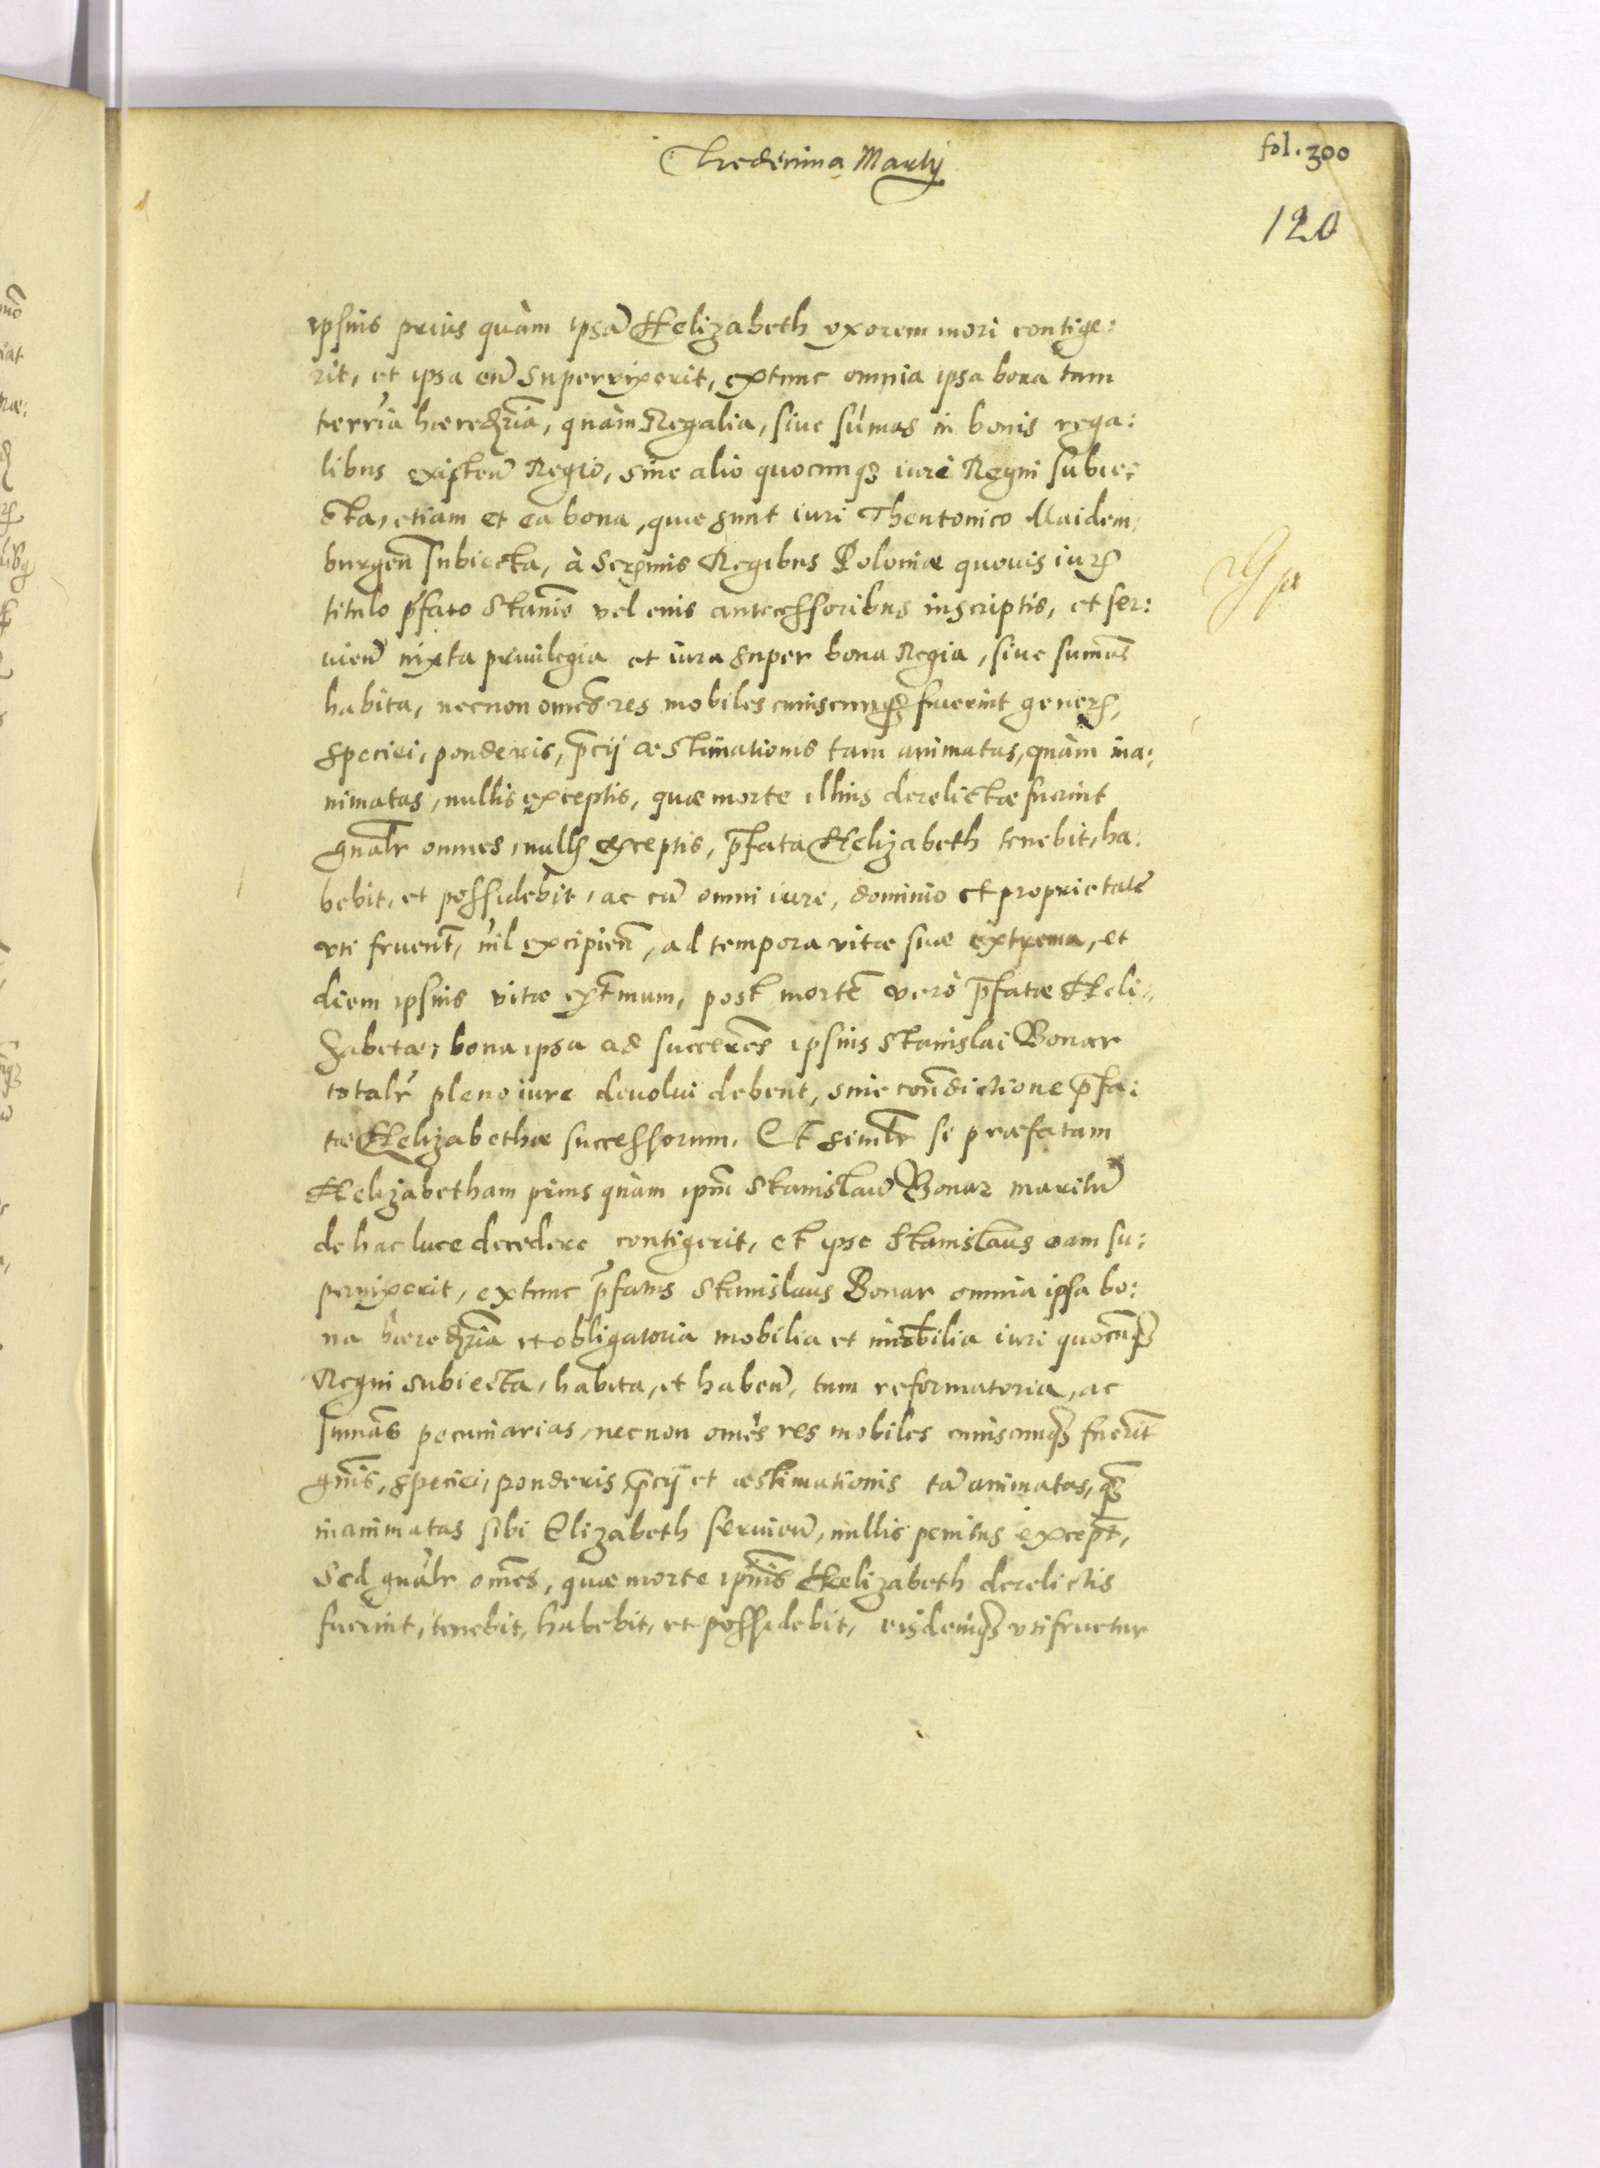 Tredecima Martij
fol. 300
120
ipsius prius quàm ipsã Helizabeth vxorem mori contige:
rit, et ipsa eũ superuixerit, extunc omnia ipsa bona tam
terr'ia hæredr̃ia, quàm Regalia, siue sum̃as in bonis rega:
libus existeñ Regio, siue alio quocunq3 iuri Regni subie:
cta, etiam et ea bona, quæ sunt iuri Theutonico Maidem:
burgeñ subiecta, à Serꝫmis Regibus Poloniæ quouis iurꝫ
titulo p̃fato Stanis̃ vel eius antecessoribus inscriptis, et ser:
uieñ iuxta priuilegia et iura super bona Regia, siue sum̃as
habita, necnon om̃es res mobiles cuiuscunq3 fuerint generꝫ,
speciei, ponderis, p̃cij æstimationis tam animatas, quàm ina:
nimatas, nullis exceptis, quæ morte illius derelictæ fuerint
gñalr omnes, nullꝫ exceptis, p̃fata Helizabeth tenebit, ha:
bebit, et possidebit, ac cũ omni iure, dominio et proprietate
vti fruent̃, nil excipieñ, ad tempora vitæ suæ extrema, et
diem ipsius vitæ ext̃mum, post mortẽ verò p̃fatæ Heli:
zabetæ, bona ipsa ad success̃es ipsius Stanislai Bonar
totalr̃ pleno iure deuolui debent, sine cont̃dictione p̃fa:
tæ Helizabethæ successorum. Et simlr̃ si præfatam
Helizabetham prius quàm ipm̃ Stanislaũ Bonar maritũ
de hac luce decedere contigerit, et ipse Stanislaus eam su:
peruixerit, extunc p̃fatus Stanislaus Bonar omnia ipsa bo:
na hæredr̃ia et obligatoria mobilia et im̃obilia iuri quocũq3
Regni subiecta, habita, et habeñ, tum reformatoria, ac
sum̃as pecuniarias, necnon om̃es res mobiles cuiuscunq3 fuerĩt
gñis, speciei, ponderis p̃cij et æstimationis tã animatas, q̃3
inanimatas sibi Elizabeth seruieñ, nullis penitus except̃,
Sed gñalr om̃es, quæ morte ipsius Helizabeth derelictis
fuerint, tenebit, habebit, et possidebit, eisdemq3 vtifruetur